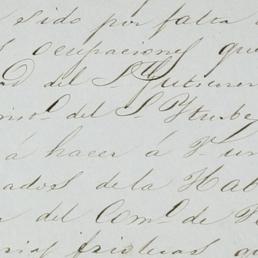 sido por falta
ocupaciones que
del Sr Gutierrez
del S. Yturbe
á hacer á V. un
ados de la Hab
del Com.o de